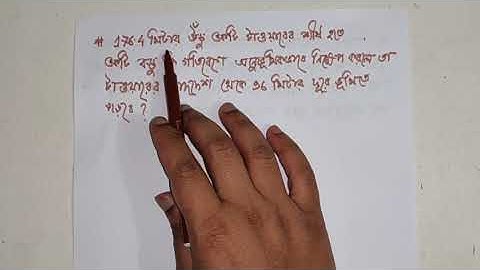 # 176.4 মিটার উঁচু একটি টাওয়ারের শীর্ষ হতে
একটি বস্তু গতিবেগে অনুভূমিকভাবে নিক্ষেপ করলে তা
টাওয়ারের পাদদেশ থেকে ৩৬ মিটার দূরে ভূমিতে
পড়বে ?